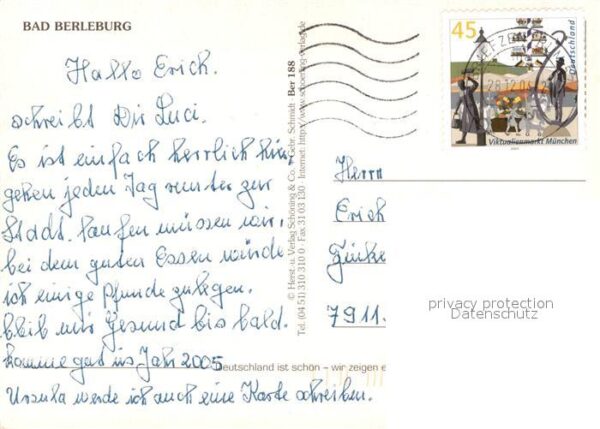 BAD BERLEBURG
Hallo Erich.
schreibt Dir Luci.
Es ist einfach herrlich hier
gehen jeden Tag runter zur
Stadt. laufen müssen wir,
bei dem guten Essen würde
ich einige Pfunde zulegen.
bleib mir Gesund bis bald.
komme gut ins Jahr 2005
Ursula werde ich auch eine Karte schreiben.
Deutschland ist schön – wir zeigen e
© Herst. u. Verlag Schöning & Co. + Gebr. Schmidt · Ber 188
Tel. (04 51) 310 310 0 · Fax 31 03 130 · Internet: http://www.schoening-verlag.de
45
Deutschland
Viktualienmarkt München
Herrn
Erich
7911.
privacy protection
Datenschutz